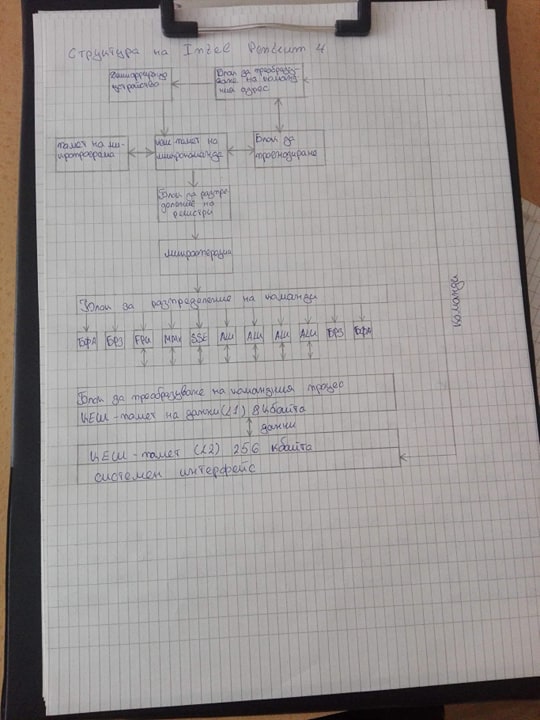 Структура на Intel Pentium 4
устройство
Блок за преобразу-
ване на команд-
ния адрес
памет на ми-
кропрограма
кеш-памет на
микрокоманда
Блок за
прогнозиране
Блок за разпре-
деление на
регистри
микрооперации
Блок за разпределение на команди
БФА БРЗ FPU MMX SSE АЛИ АЛИ АЛИ АЛИ БРЗ БФА
команди
Блок за преобразуване на командния процес
КЕШ-памет на данни (L1) 8 кбайта
данни
КЕШ-памет (L2) 256 кбайта
системен интерфейс